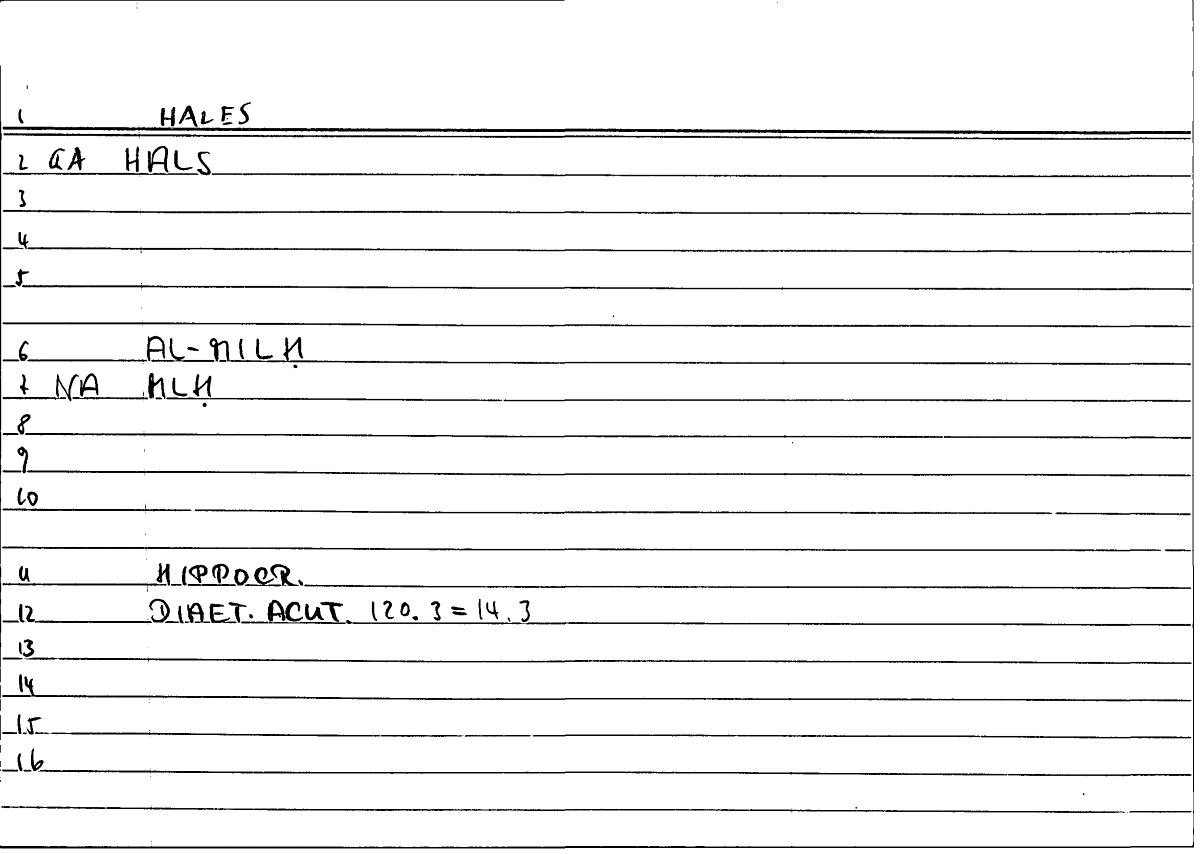 1 HALES
2 GA HALS
3
4
5
6 AL-MILḤ
7 NA MLḤ
8
9
10
11 HIPPOCR.
12 DIAET. ACUT. 120.3 = 14.3
13
14
15
16